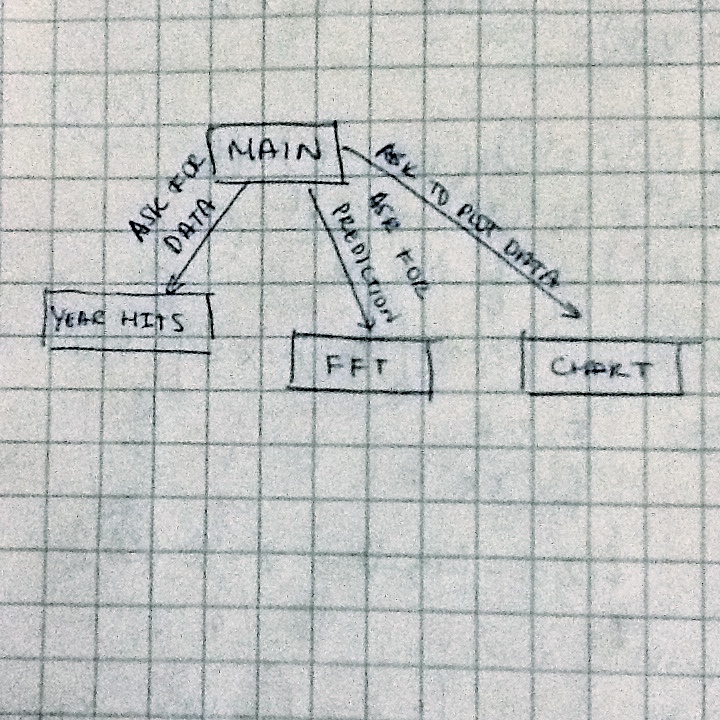 MAIN
ASK FOR
DATA
ASK FOR
PREDICTION
ASK TO PLOT DATA
YEAR HITS
FFT
CHART